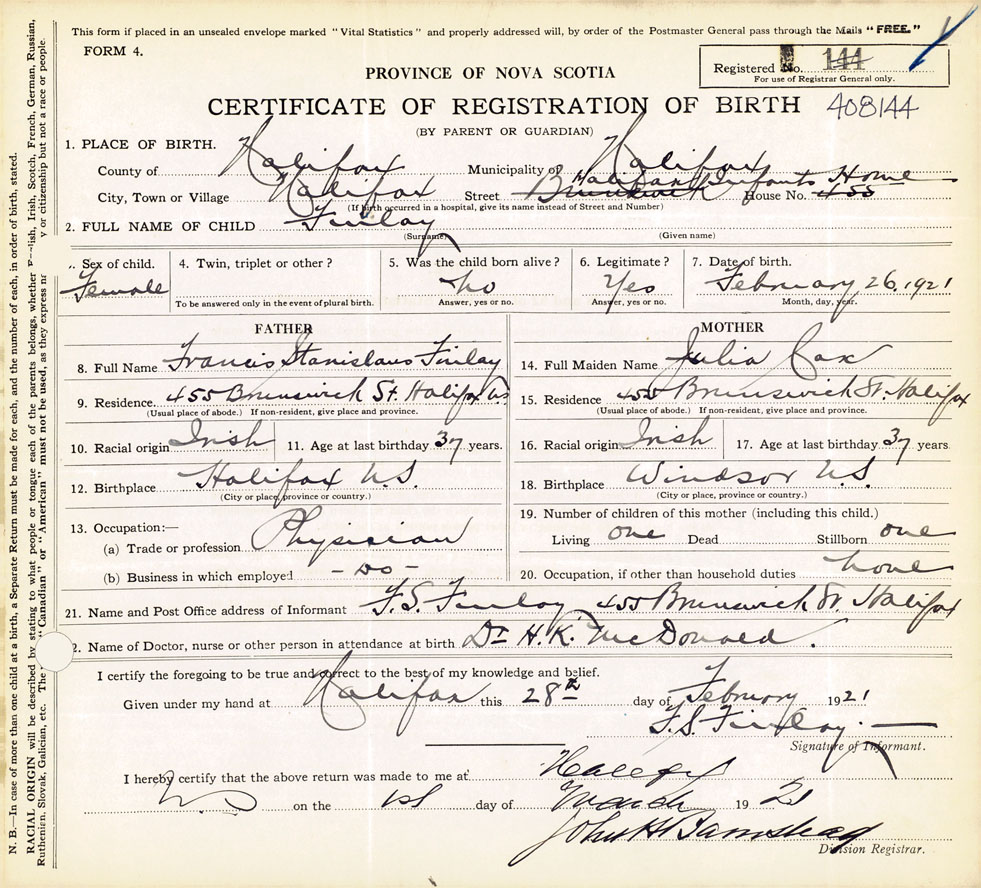 This form if placed in an unsealed envelope marked "Vital Statistics" and properly addressed will, by order of the Postmaster General pass through the Mails "FREE."
FORM 4.
Registered No. 144
For use of Registrar General only.
PROVINCE OF NOVA SCOTIA
CERTIFICATE OF REGISTRATION OF BIRTH 408144
(BY PARENT OR GUARDIAN)
1. PLACE OF BIRTH.
County of Halifax Municipality of Halifax
City, Town or Village Halifax Street Brunswick Halifax Infants Home House No. 455
(If birth occurred in a hospital, give its name instead of Street and Number)
2. FULL NAME OF CHILD Finlay
(Surname) (Given name)
. Sex of child. Female
4. Twin, triplet or other ?
To be answered only in the event of plural birth.
5. Was the child born alive ? No
Answer, yes or no.
6. Legitimate ? Yes
Answer, yes or no.
7. Date of birth. February 26, 1921
Month, day, year.
FATHER
8. Full Name Francis Stanislaus Finlay
9. Residence 455 Brunswick St. Halifax
(Usual place of abode.) If non-resident, give place and province.
10. Racial origin Irish 11. Age at last birthday 37 years.
12. Birthplace Halifax N.S.
(City or place, province or country.)
13. Occupation:—
(a) Trade or profession Physician
(b) Business in which employed - Do -
MOTHER
14. Full Maiden Name Julia Cox
15. Residence 455 Brunswick St. Halifax
(Usual place of abode.) If non-resident, give place and province.
16. Racial origin Irish 17. Age at last birthday 37 years.
18. Birthplace Windsor N.S.
(City or place, province or country.)
19. Number of children of this mother (including this child.)
Living one Dead Stillborn one
20. Occupation, if other than household duties none
21. Name and Post Office address of Informant F.S. Finlay 455 Brunswick St. Halifax
2. Name of Doctor, nurse or other person in attendance at birth Dr H.K. McDonald.
I certify the foregoing to be true and correct to the best of my knowledge and belief.
Given under my hand at Halifax this 28th day of February 1921
F.S. Finlay.
Signature of Informant.
I hereby certify that the above return was made to me at Halifax
N.S. on the 1st day of March 1921
John H Barnstead
Division Registrar.
N. B.—In case of more than one child at a birth, a Separate Return must be made for each, and the number of each, in order of birth, stated.
RACIAL ORIGIN will be described by stating to what people or tongue each of the parents belongs, whether lish, Irish, Scotch, French, German, Russian,
Ruthenian, Slovak, Galician, etc. The "Canadian" or "American" must not be used, as they express y or citizenship but not a race or people.